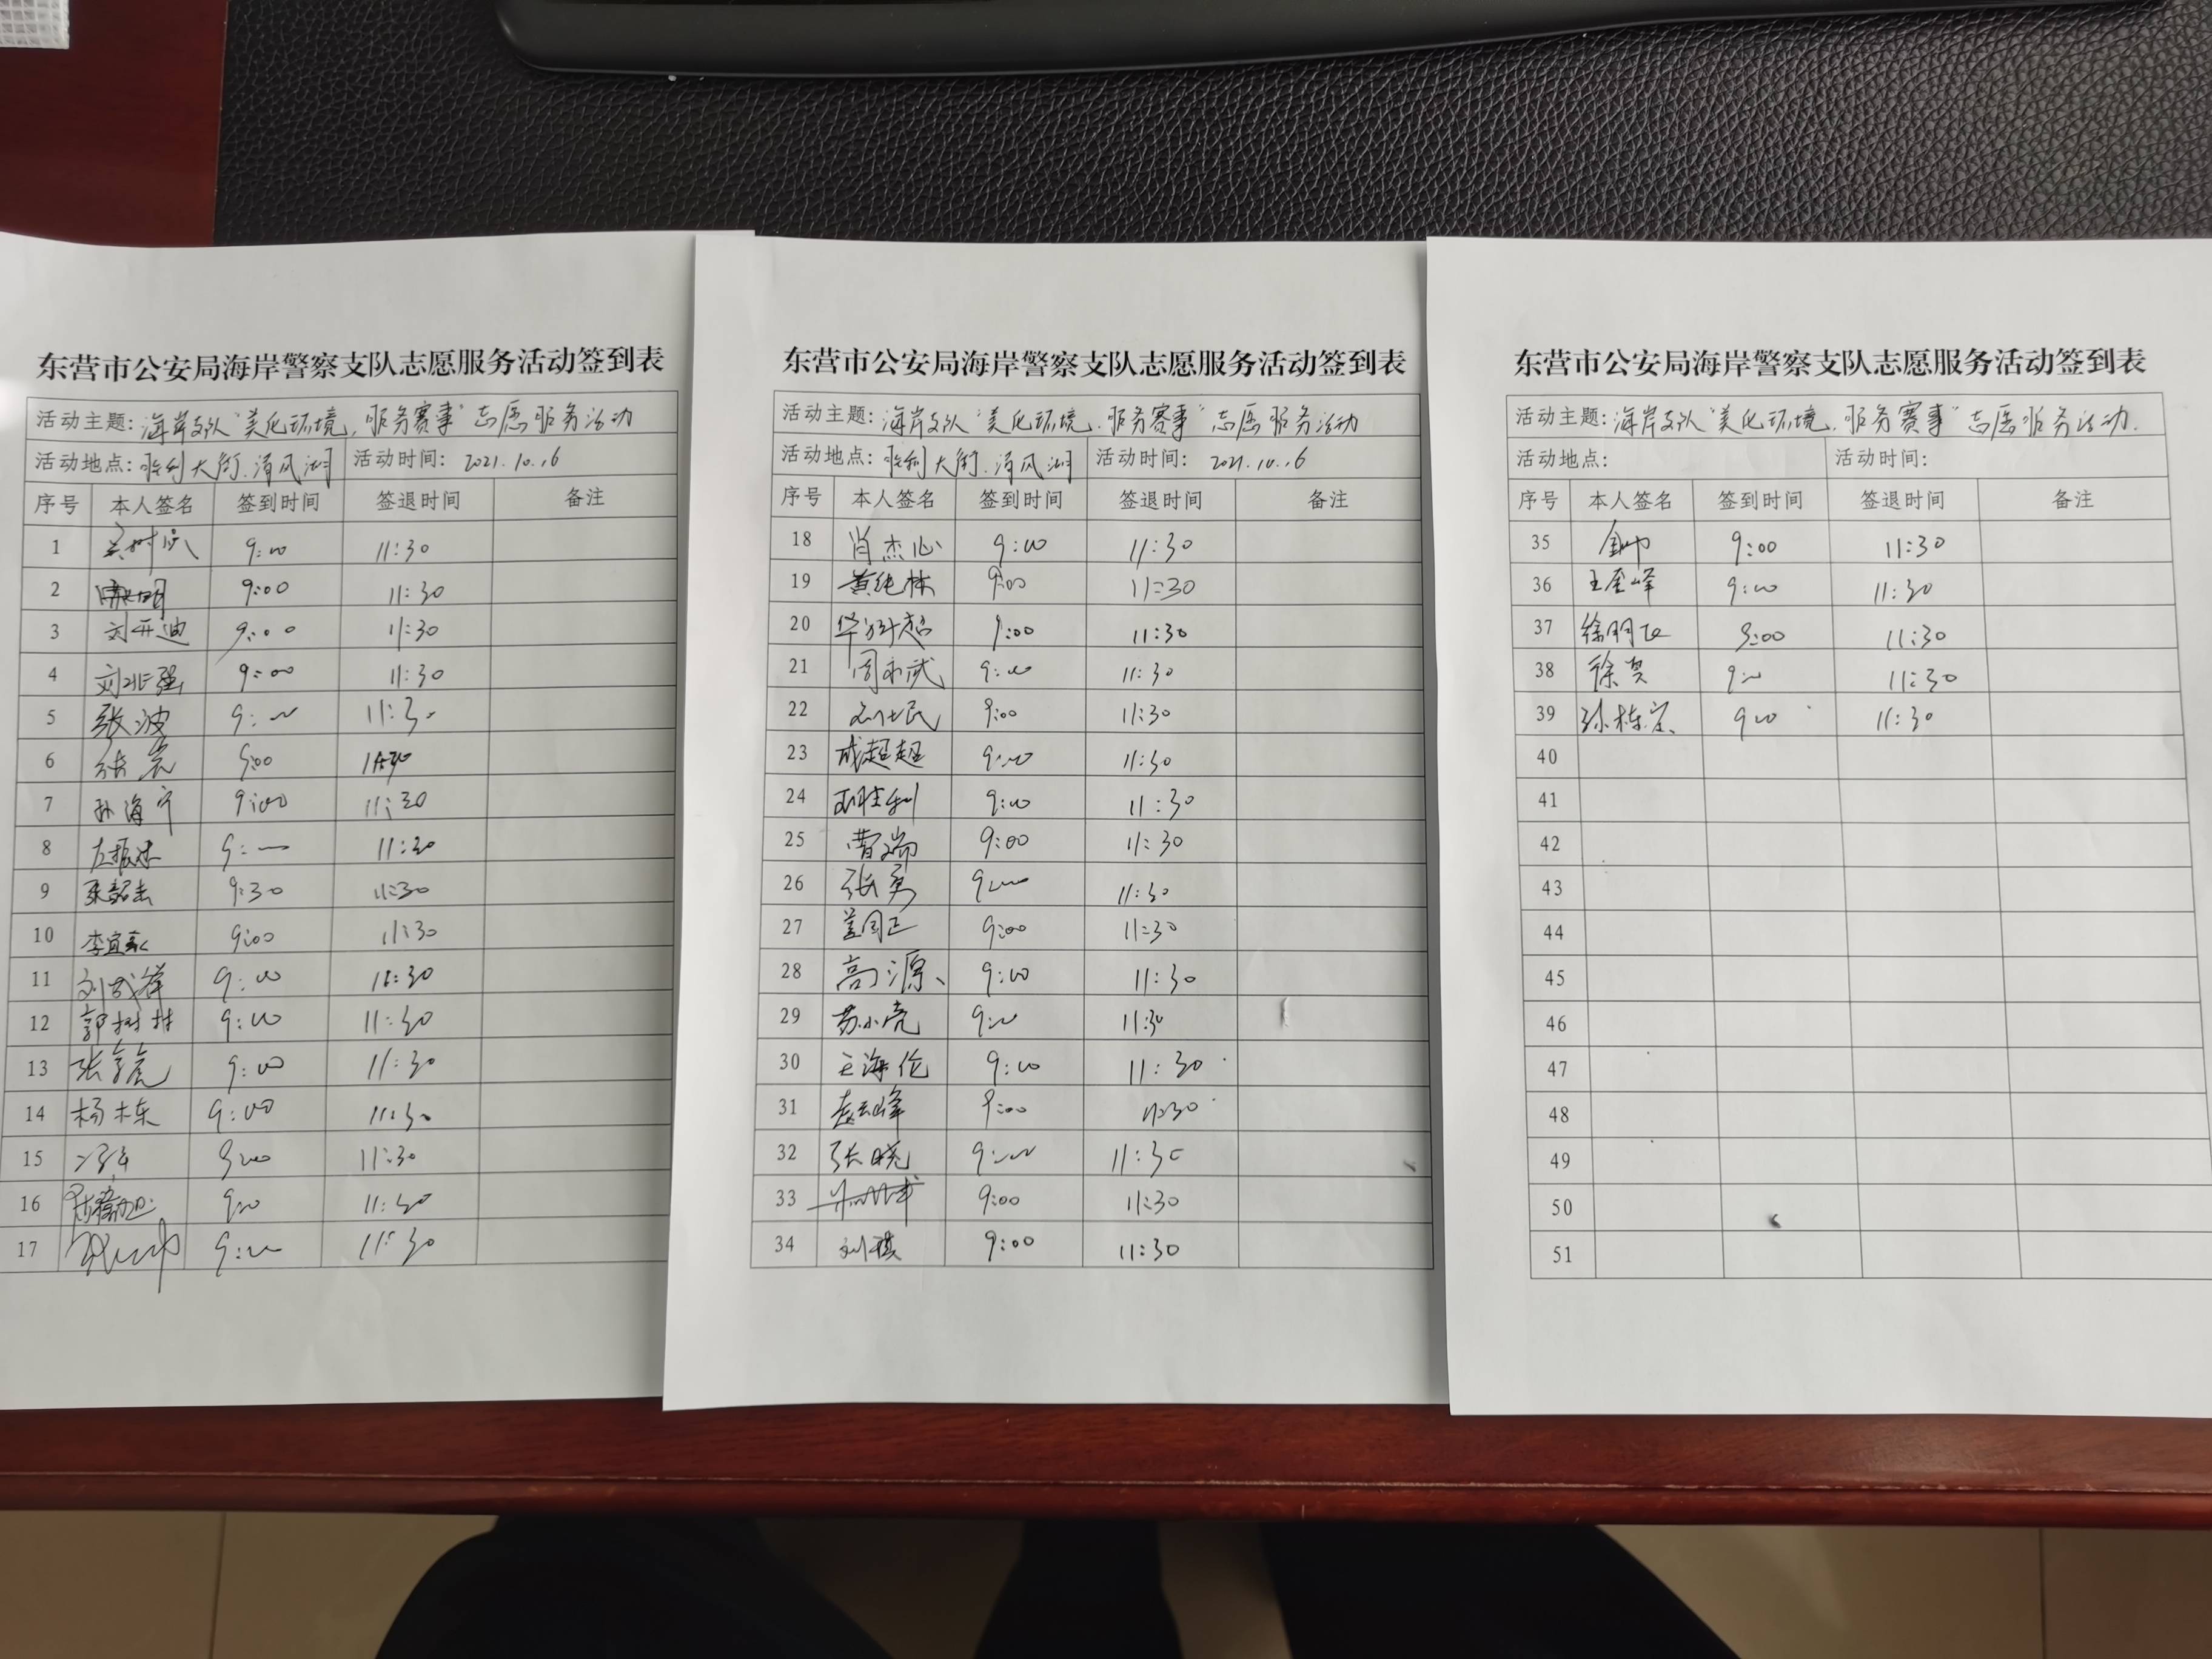 东营市公安局海岸警察支队志愿服务活动签到表
活动主题: 海岸支队"美化环境,服务赛事"志愿服务活动
活动地点: 胜利大街.清风湖 活动时间: 2021.10.16
序号 本人签名 签到时间 签退时间 备注
1 9:00 11:30
2 9:00 11:30
3 刘开迪 9:00 11:30
4 刘 强 9:00 11:30
5 张波 9:00 11:30
6 张 9:00 11:30
7 孙海宁 9:00 11:30
8 左振 9:00 11:30
9 9:30 11:30
10 李宜 9:00 11:30
11 刘 9:00 11:30
12 郭树林 9:00 11:30
13 张 9:00 11:30
14 杨栋 9:00 11:30
15 9:00 11:30
16 9:00 11:30
17 9:00 11:30
东营市公安局海岸警察支队志愿服务活动签到表
活动主题: 海岸支队"美化环境.服务赛事"志愿服务活动
活动地点: 胜利大街.清风湖 活动时间: 2021.10.16
序号 本人签名 签到时间 签退时间 备注
18 肖杰 9:00 11:30
19 黄纯林 9:00 11:30
20 超 9:00 11:30
21 周永武 9:00 11:30
22 民 9:00 11:30
23 成超超 9:00 11:30
24 胜利 9:00 11:30
25 曹瑞 9:00 11:30
26 张勇 9:00 11:30
27 国正 9:00 11:30
28 高源 9:00 11:30
29 苏小亮 9:00 11:30
30 王海伦 9:00 11:30
31 峰 9:00 11:30
32 张晓 9:00 11:30
33 9:00 11:30
34 刘祺 9:00 11:30
东营市公安局海岸警察支队志愿服务活动签到表
活动主题: 海岸支队"美化环境.服务赛事"志愿服务活动.
活动地点: 活动时间:
序号 本人签名 签到时间 签退时间 备注
35 9:00 11:30
36 王奎峰 9:00 11:30
37 徐明 9:00 11:30
38 徐昊 9:00 11:30
39 孙栋 9:00 11:30
40
41
42
43
44
45
46
47
48
49
50
51